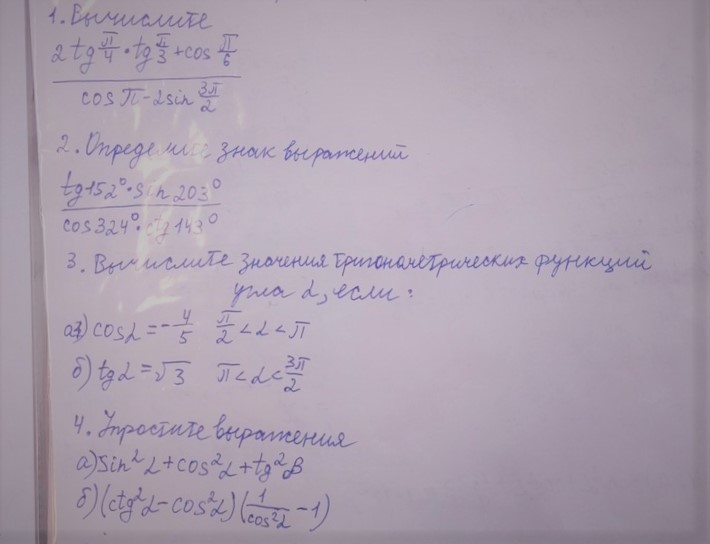 1. Вычислите
2 tg π/4 · tg π/3 + cos π/6
cos π - 2 sin 3π/2
2. Определите знак выражений
tg 152° · sin 203°
cos 324° · ctg 143°
3. Вычислите значения тригонометрических функций
угла α, если:
а) cos α = - 4/5 π/2 < α < π
б) tg α = √3 π < α < 3π/2
4. Упростите выражения
а) sin² α + cos² α + tg² β
б) (ctg² α - cos² α) (1/cos² α - 1)